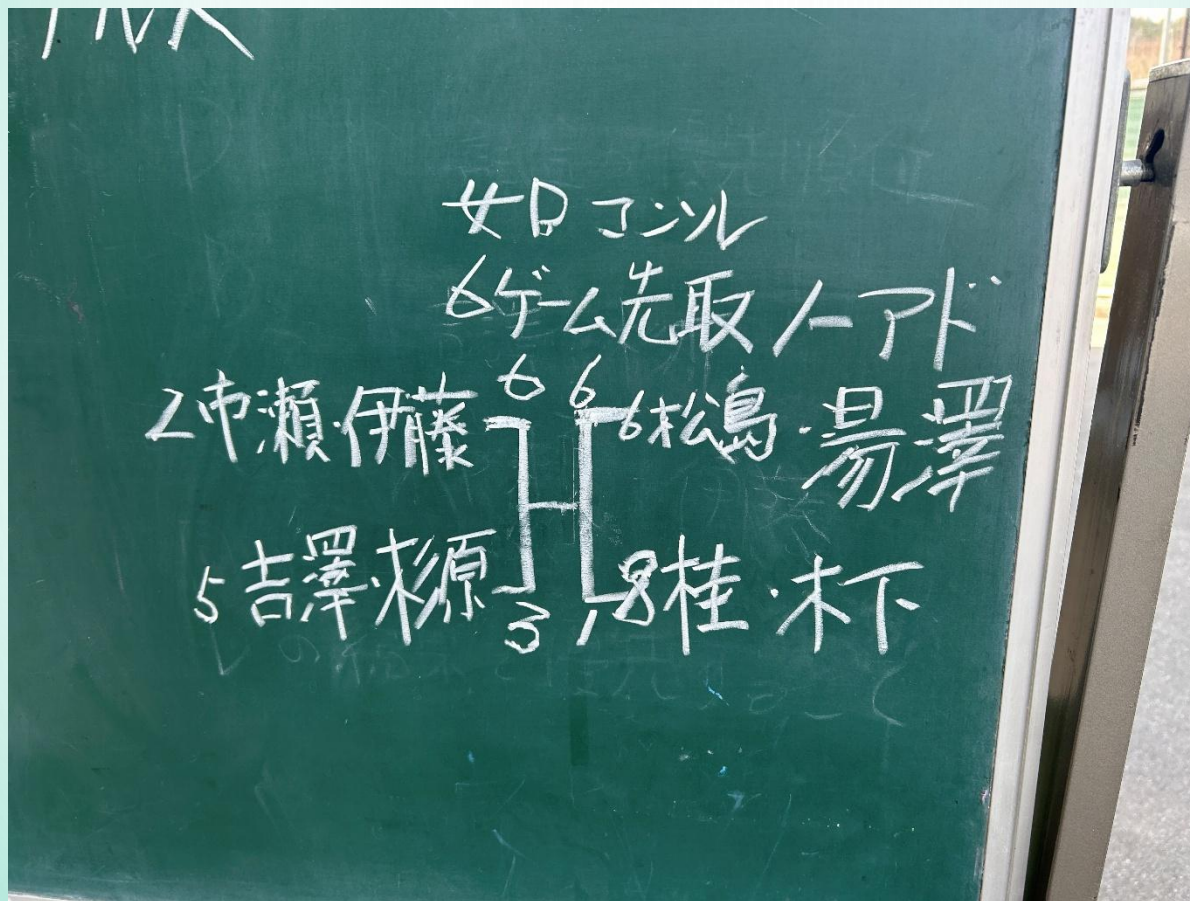 女D コンソル
6ゲーム先取 ノーアド
6 6
2市瀬・伊藤 6松島・湯澤
5吉澤・杉原 8桂・木下
3 1